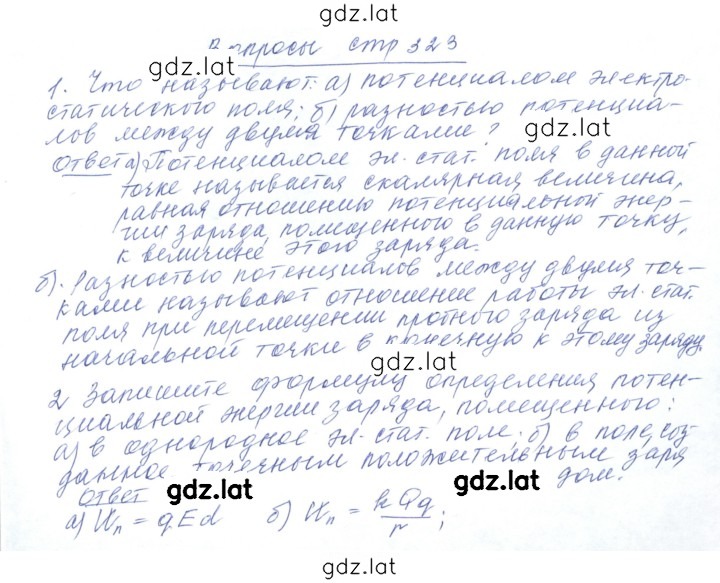 gdz.lat
Вопросы стр 323
gdz.lat
1. Что называют: а) потенциалом электро-
статического поля; б) разностью потенциа-
лов между двумя точками?
gdz.lat
Ответ а) Потенциалом эл. стат. поля в данной
точке называется скалярная величина,
равная отношению потенциальной энер-
гии заряда, помещенного в данную точку,
к величине этого заряда.
б). Разностью потенциалов между двумя точ-
ками называют отношение работы эл. стат.
поля при перемещении пробного заряда из
начальной точки в конечную к этому заряду.
gdz.lat
2 Запишите формулу определения потен-
циальной энергии заряда, помещенного:
а) в однородное эл. стат. поле; б) в поле, соз
данное точечным положительным заря
дом.
Ответ
gdz.lat gdz.lat
а) Wп = qEd б) Wп = kQq/r;
gdz.lat